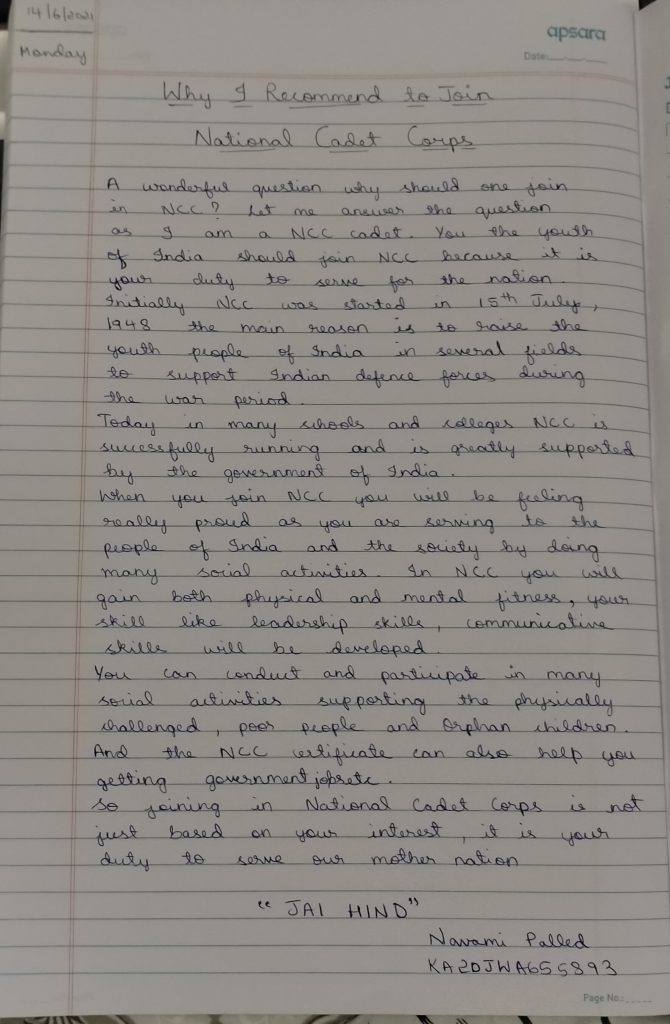 14/6/2021
Monday
apsara
Date:
Why I Recommend to Join
National Cadet Corps
A wonderful question why should one join
in NCC? Let me answer the question
as I am a NCC cadet. You the youth
of India should join NCC because it is
your duty to serve for the nation.
Initially NCC was started in 15th July,
1948 the main reason is to raise the
youth people of India in several fields
to support Indian defence forces during
the war period.
Today in many schools and colleges NCC is
successfully running and is greatly supported
by the government of India.
When you join NCC you will be feeling
really proud as you are serving to the
people of India and the society by doing
many social activities. In NCC you will
gain both physical and mental fitness, your
skill like leadership skills, communicative
skills will be developed.
You can conduct and participate in many
social activities supporting the physically
challenged, poor people and Orphan children.
And the NCC certificate can also help you
getting government jobsetc.
So joining in National Cadet Corps is not
just based on your interest, it is your
duty to serve our mother nation
"JAI HIND"
Navami Palled
KA20JWA655893
Page No.: